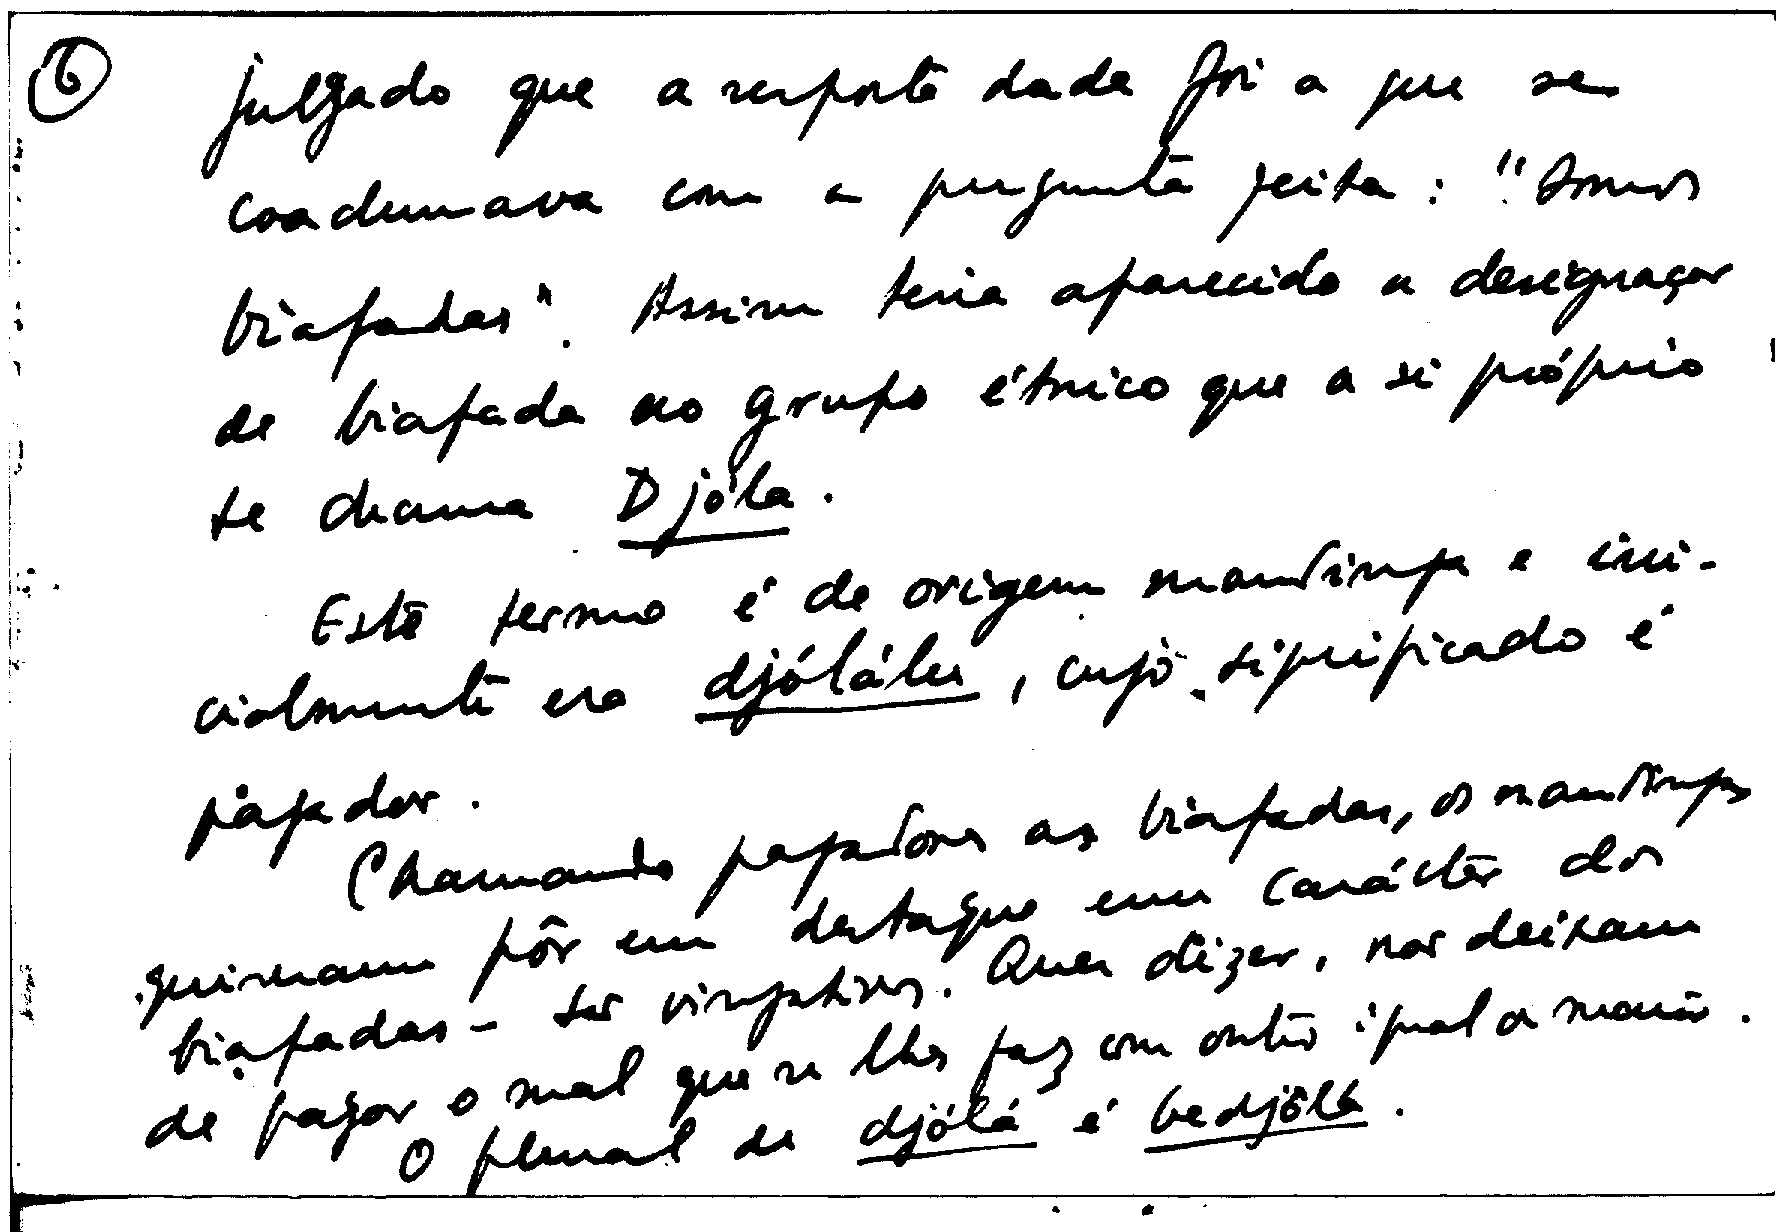 6
julgado que a resposta dada foi a que se
coadunava com a pergunta feita: "Somos
biafadas". Assim teria aparecido a designação
de biafada ao grupo étnico que a si próprio
se chama Djóla.
Este termo é de origem mandinga e ini-
cialmente era djólálu, cujo significado é
pagador.
Chamando pagadores aos biafadas, os mandingas
quiseram pôr em destaque um carácter dos
biafadas - ser vingativos. Quer dizer, não deixam
de pagar o mal que se lhes faz com outro igual ou maior.
O plural de djólá é bedjólá.